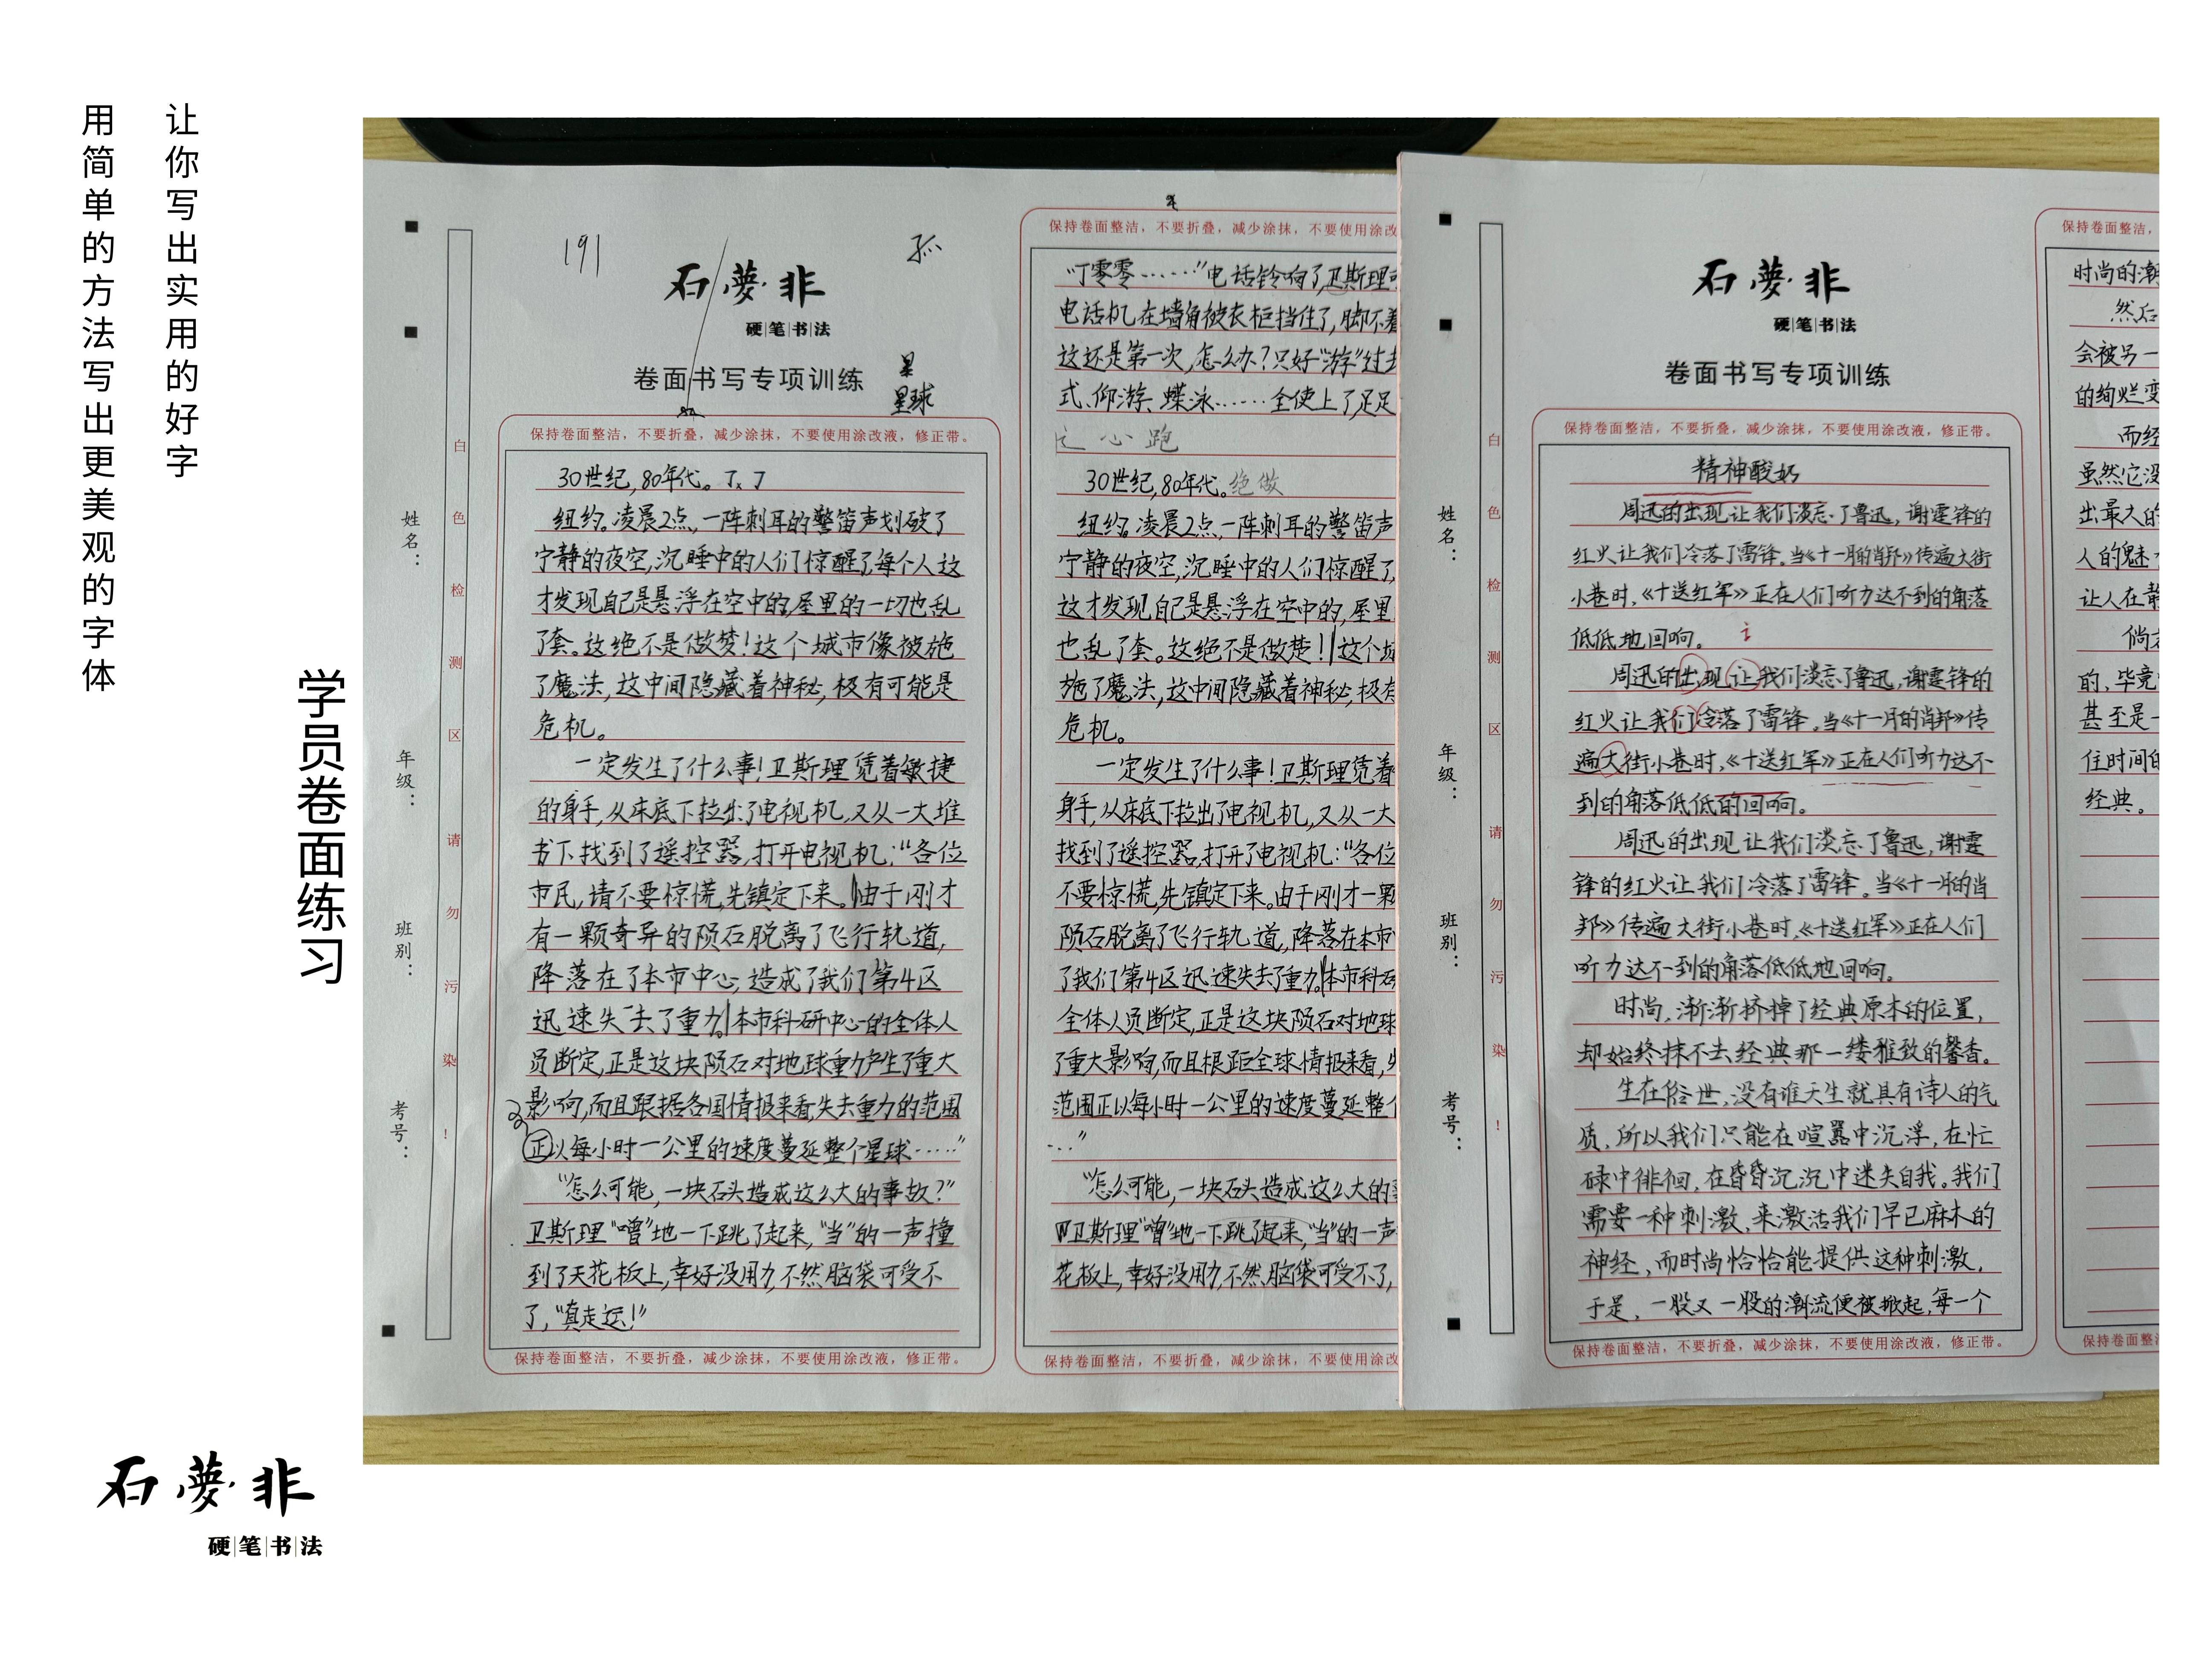 让你写出实用的好字
用简单的方法写出更美观的字体
学员卷面练习
石夢非
硬|笔|书|法
191
孤
石夢非
硬|笔|书|法
卷面书写专项训练
星球
姓名：
年级：
班别：
考号：
白色检测区请勿污染！
保持卷面整洁，不要折叠，减少涂抹，不要使用涂改液，修正带。
30世纪,80年代。
纽约。凌晨2点,一阵刺耳的警笛声划破了
宁静的夜空,沉睡中的人们惊醒了,每个人这
才发现自己是悬浮在空中的,屋里的一切也乱
了套。这绝不是做梦!这个城市像被施
了魔法,这中间隐藏着神秘,极有可能是
危机。
一定发生了什么事!卫斯理凭着敏捷
的身手,从床底下拉出了电视机,又从一大堆
书下找到了遥控器,打开电视机:“各位
市民,请不要惊慌,先镇定下来。由于刚才
有一颗奇异的陨石脱离了飞行轨道,
降落在了本市中心,造成了我们第4区
迅速失去了重力。本市科研中心的全体人
员断定,正是这块陨石对地球重力产生了重大
影响,而且跟据各国情报来看,失去重力的范围
正以每小时一公里的速度蔓延整个星球……”
“怎么可能,一块石头造成这么大的事故?”
卫斯理“噌”地一下跳了起来,“当”的一声撞
到了天花板上,幸好没用力,不然脑袋可受不
了,“真走运!”
保持卷面整洁，不要折叠，减少涂抹，不要使用涂改液，修正带。
保持卷面整洁，不要折叠，减少涂抹，不要使用涂改
“丁零零……”电话铃响了,卫斯理
电话机在墙角被衣柜挡住了,脚不着
这还是第一次,怎么办?只好“游”过去
式、仰游、蝶泳……全使上了足足
心跑
30世纪,80年代。绝做
纽约。凌晨2点,一阵刺耳的警笛声
宁静的夜空,沉睡中的人们惊醒了,
这才发现自己是悬浮在空中的,屋里
也乱了套。这绝不是做楚!这个城
施了魔法,这中间隐藏着神秘,极有
危机。
一定发生了什么事!卫斯理凭着
身手,从床底下拉出了电视机,又从一大
找到了遥控器,打开了电视机:“各位
不要惊慌,先镇定下来。由于刚才一颗
陨石脱离了飞行轨道,降落在本市
了我们第4区迅速失去了重力。本市科研
全体人员断定,正是这块陨石对地球
了重大影响,而且根距全球情报来看,失
范围正以每小时一公里的速度蔓延整个
…”
“怎么可能,一块石头造成这么大的事
卫斯理“噌”地一下跳了起来,“当”的一声
花板上,幸好没用力,不然脑袋可受不了,
保持卷面整洁，不要折叠，减少涂抹，不要使用涂改
石夢非
硬|笔|书|法
卷面书写专项训练
姓名：
年级：
班别：
考号：
白色检测区请勿污染！
保持卷面整洁，不要折叠，减少涂抹，不要使用涂改液，修正带。
精神酸奶
周迅的出现让我们淡忘了鲁迅,谢霆锋的
红火让我们冷落了雷锋。当《十一月的肖邦》传遍大街
小巷时,《十送红军》正在人们听力达不到的角落
低低地回响。
周迅的出现让我们淡忘了鲁迅,谢霆锋的
红火让我们冷落了雷锋。当《十一月的肖邦》传
遍大街小巷时,《十送红军》正在人们听力达不
到的角落低低的回响。
周迅的出现让我们淡忘了鲁迅,谢霆
锋的红火让我们冷落了雷锋。当《十一月的肖
邦》传遍大街小巷时,《十送红军》正在人们
听力达不到的角落低低地回响。
时尚,渐渐挤掉了经典原本的位置,
却始终抹不去经典那一缕雅致的馨香。
生在俗世,没有谁天生就具有诗人的气
质,所以我们只能在喧嚣中沉浮,在忙
碌中徘徊,在昏昏沉沉中迷失自我。我们
需要一种刺激,来激活我们早已麻木的
神经,而时尚恰恰能提供这种刺激,
于是,一股又一股的潮流便被掀起,每一个
保持卷面整洁，不要折叠，减少涂抹，不要使用涂改液，修正带。
保持卷面整洁，
时尚的潮
然后
会被另一
的绚烂变
而经
虽然它没
出最大的
人的魅
让人在静
倘若
的,毕竟
甚至是一
住时间的
经典。
保持卷面整洁